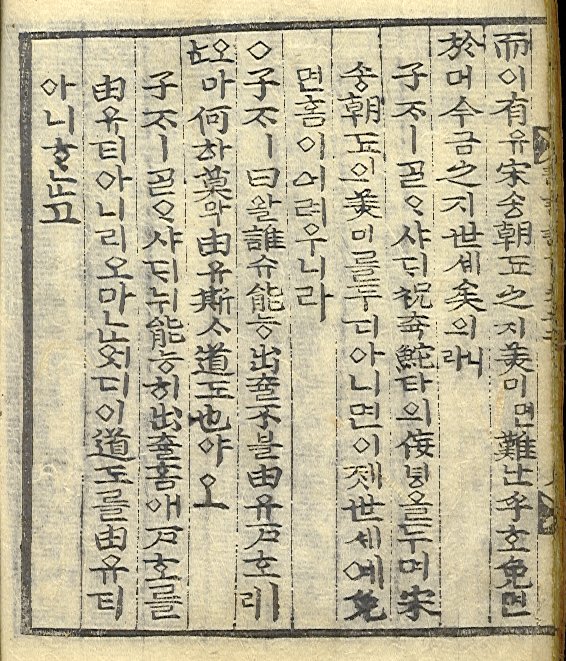 而이有유宋송朝됴之지美미면難난乎호免면
於어今금之지世셰矣의니라
子ᄌᆞㅣᄀᆞᆯᄋᆞ샤ᄃᆡ祝츅鮀타의佞녕을두며宋
송朝됴의美미를두디아니면이젯世셰예免
면홈이어려우니라
○子ᄌᆞㅣ曰왈誰슈能능出츌不블由유戶호ㅣ리
오마ᄂᆞᆫ何하莫막由유斯ᄉᆞ道도也야오
子ᄌᆞㅣᄀᆞᆯᄋᆞ샤ᄃᆡ뉘能능히出츌홈애戶호를
由유티아니리오마ᄂᆞᆫ엇디이道도를由유티
아니ᄒᆞᄂᆞᆫ고